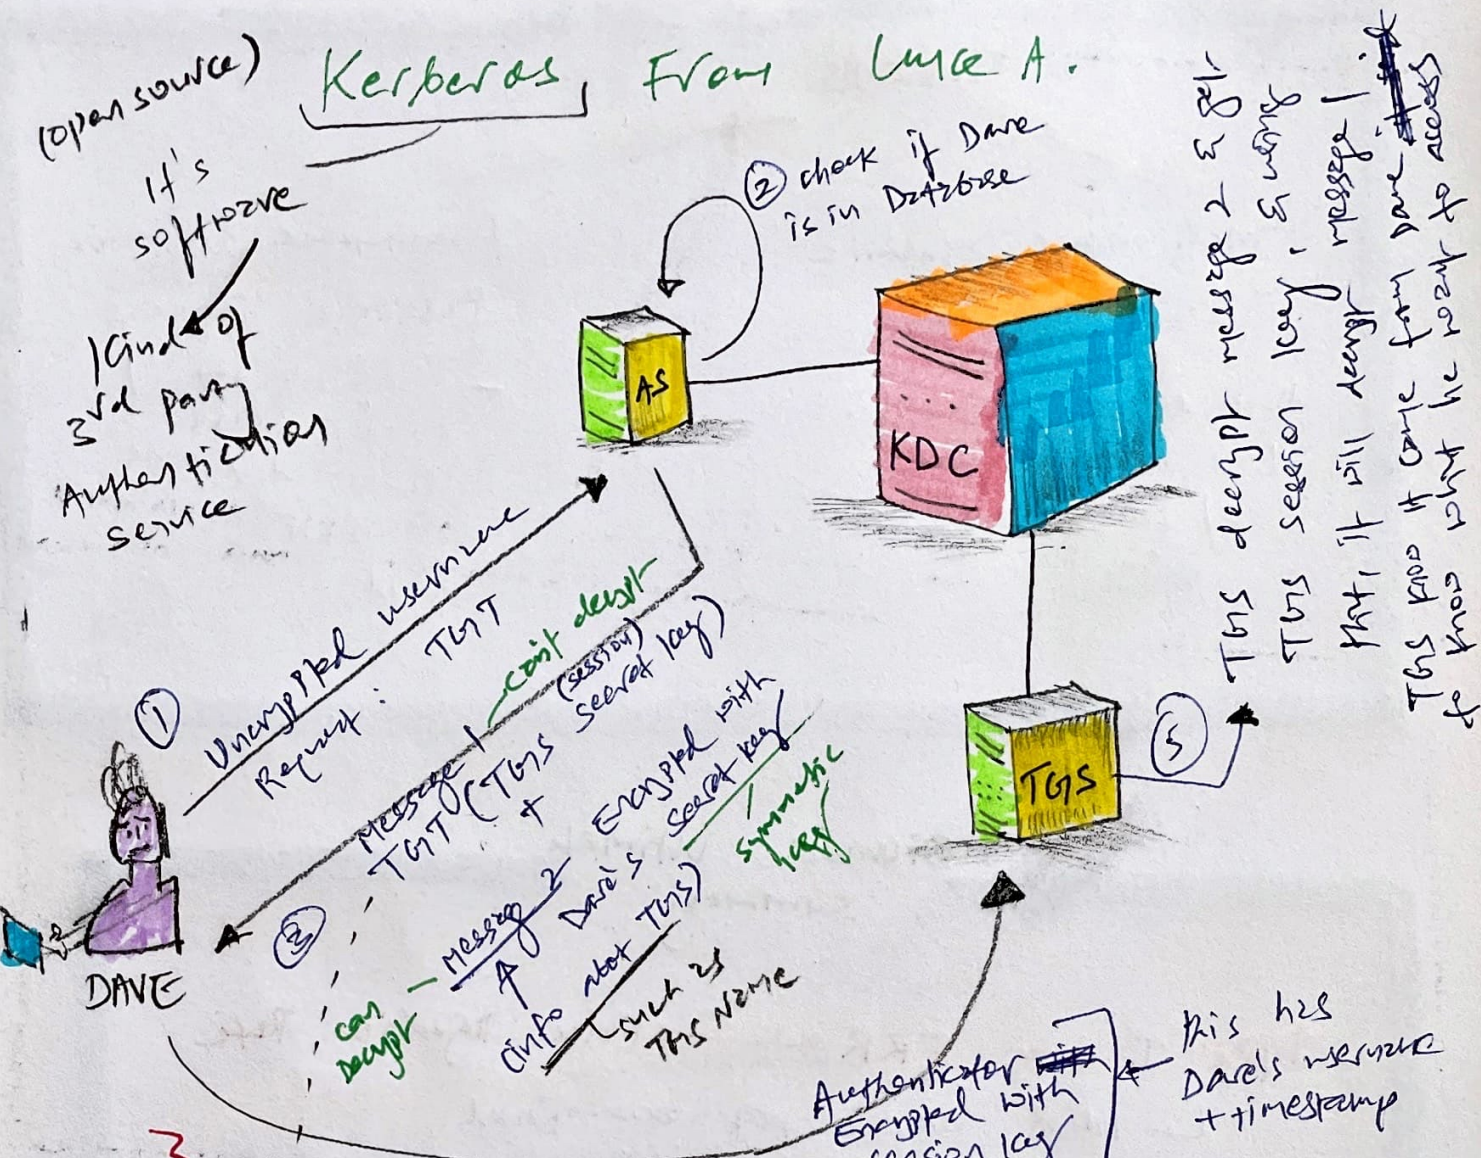 (open source)
Kerberos From Luca A.
It's
software
Kind of
3rd party
Authentication
service
② check if Dave
is in Database
AS
KDC
TGS
① Unencrypted username
Request : TGT
can't decrypt
③
Message 1
TGT (TGS (session) secret key)
+
Message 2 Encrypted with
Dave's secret key
symmetric
key
(info about TGS)
such as
TGS Name
can
Decrypt
DAVE
⑤
TGS decrypt message 2 & get
TGS session key. & using
that, it will decrypt message 1
TGS know it come from Dave
& know what he want to access
Authenticator
Encrypted with
session key
this has
Dave's username
+ timestamp